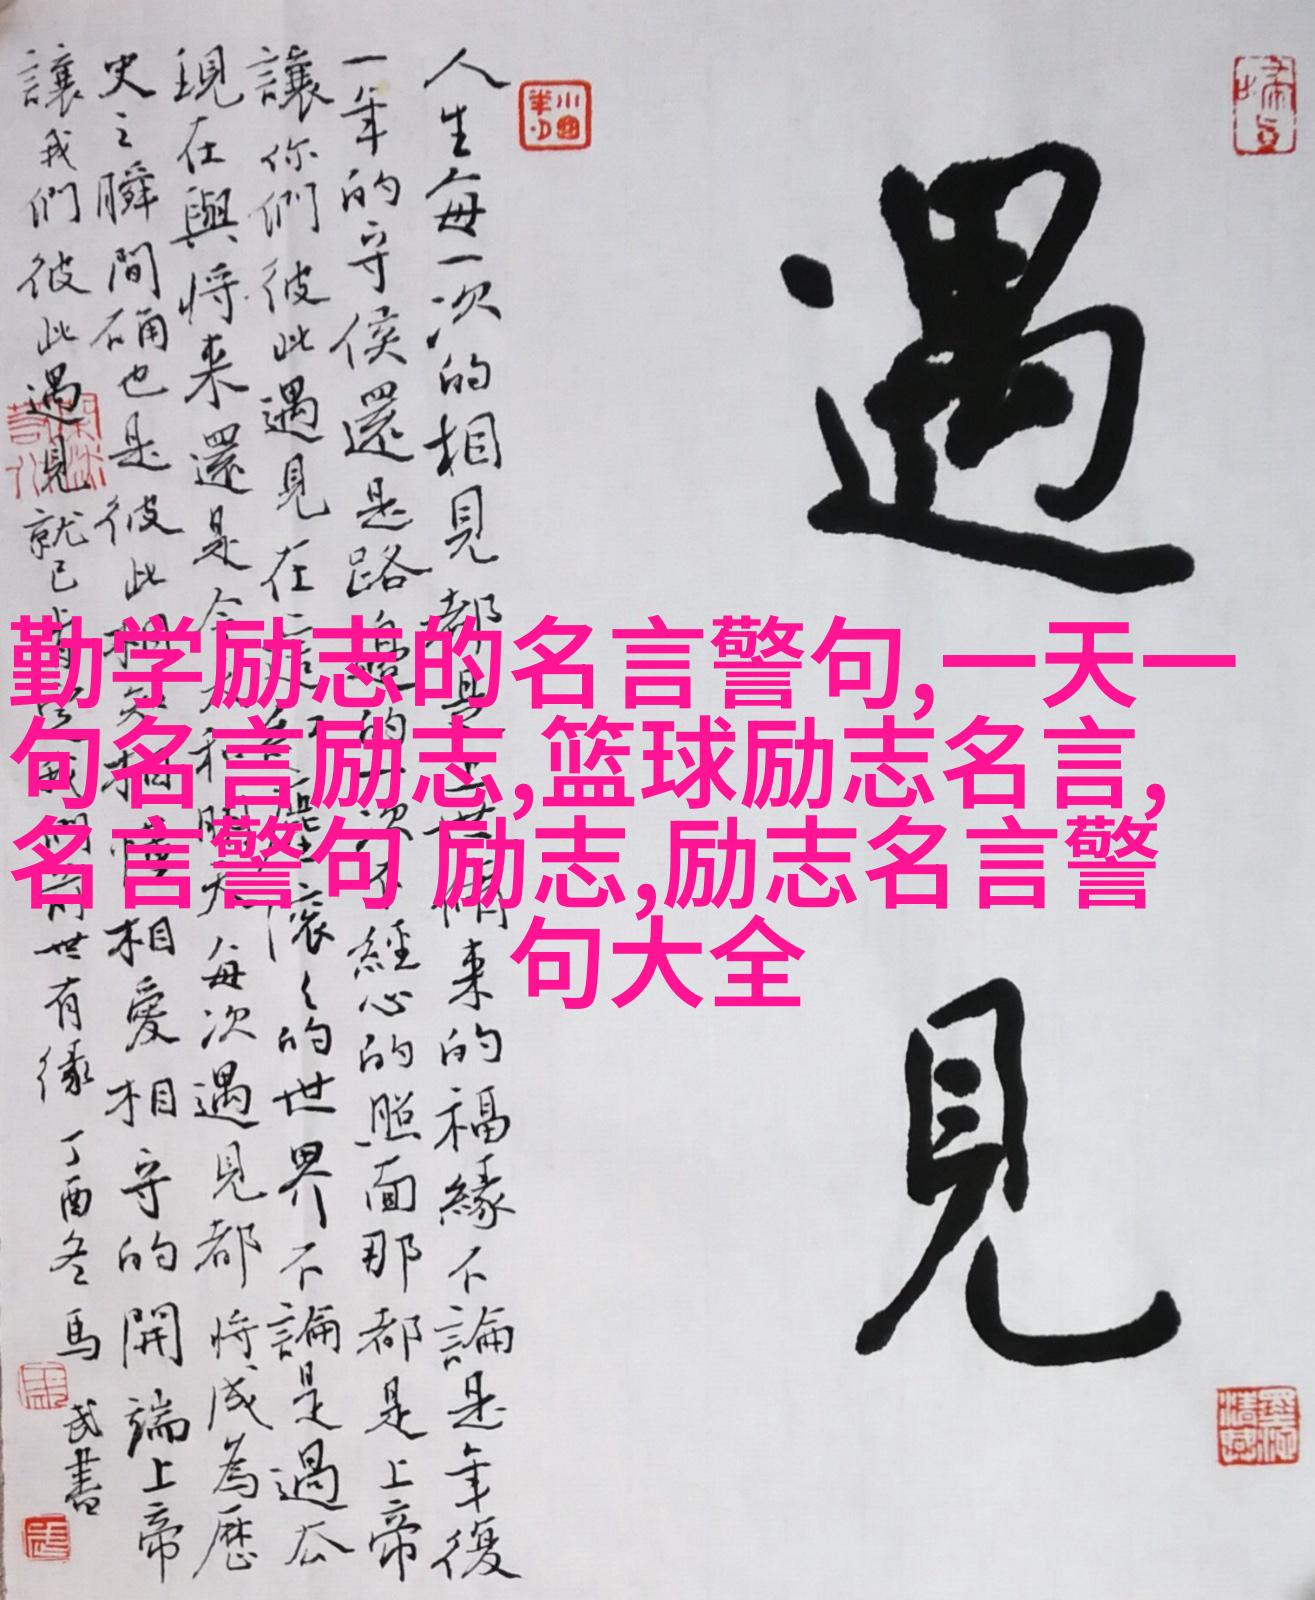 遇見
人生每一次的相見都是上世修来的福緣不論是年復
一年的守侯還是路邊的一次不經心的照面那都是上帝
讓你們彼此遇見在這滾々的世界不論是過去
現在與將来還是今天和明天每次遇見都將成為歷
史之瞬間硧也是彼此相知相惜相愛相守的開端上帝
讓我們彼此遇見就已世有缘
丁酉冬馬武書
勤学励志的名言警句,一天一
句名言励志,篮球励志名言,
名言警句 励志,励志名言警
句大全